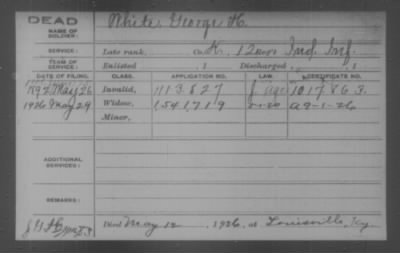 DEAD
NAME OF SOLDIER: White, George H.
SERVICE: Late rank, Co. K, 12 Regt Ind. Inf.
TERM OF SERVICE: Enlisted , 1 Discharged , 1
DATE OF FILING. CLASS. APPLICATION NO. LAW. CERTIFICATE NO.
1892 May 26 Invalid, 1113827 1017863
1926 May 29 Widow, 1541719 A 9-1-26
Minor,
ADDITIONAL SERVICES:
REMARKS:
Died May 12, 1926, at Louisville, Ky.